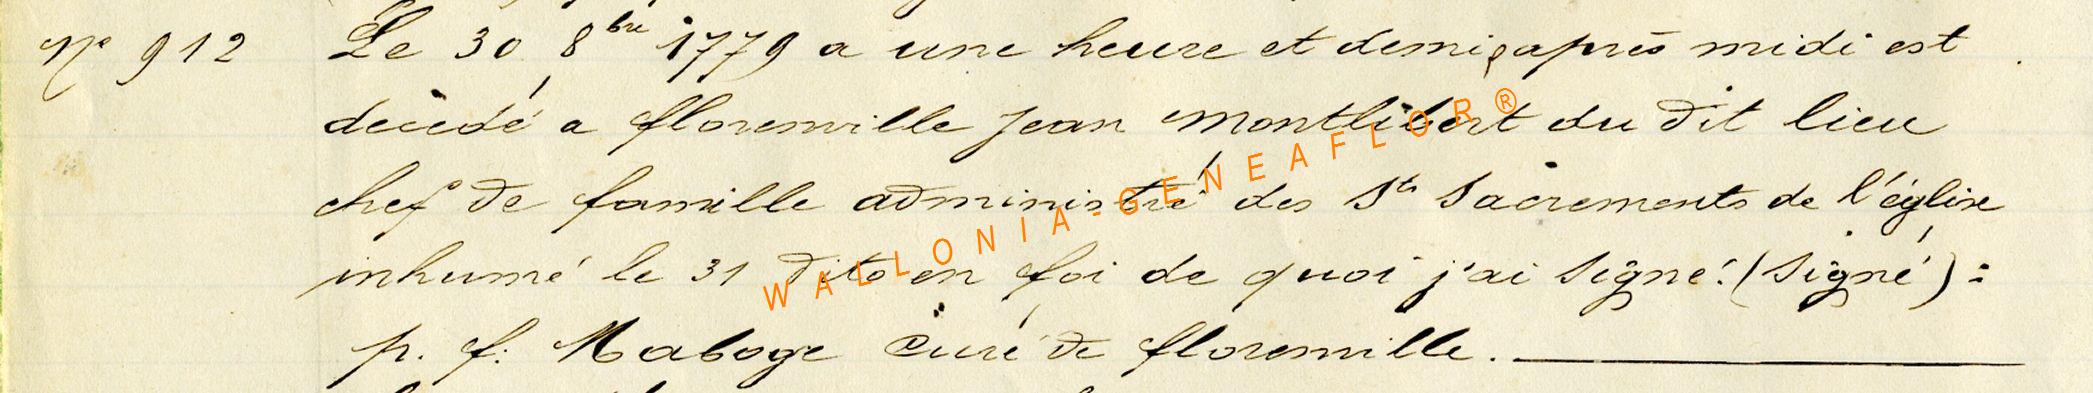 N° 912 Le 30 8bre 1779 a une heure et demie après midi est
décédé a florenville Jean Montlibert du dit lieu
chef de famille administré des Sts Sacrements de l'église
inhumé le 31 dito en foi de quoi j'ai signé: (Signé):
p. f: Maboge Curé de florenville.
WALLONIA-GENEAFLOR®